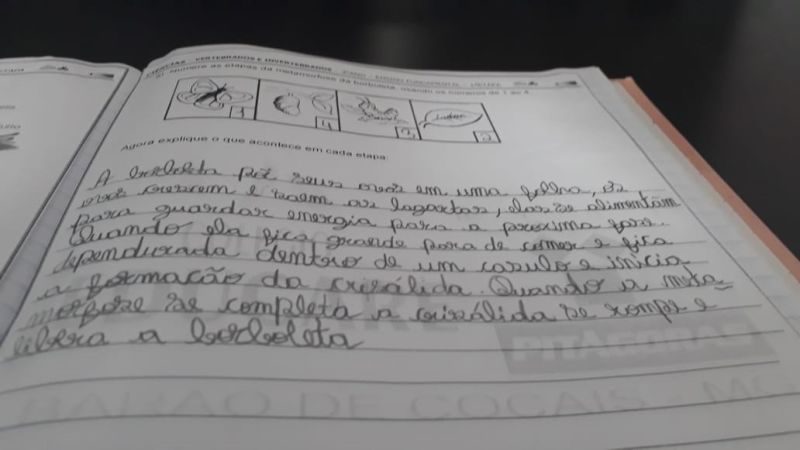 CIÊNCIAS - VERTEBRADOS E INVERTEBRADOS
numere as etapas da metamorfose da borboleta, usando os números de 1 ao 4.
3 4 2
Agora explique o que acontece em cada etapa:
A borboleta põe seus ovos em uma folha, os
ovos crescem e saem as lagartas, elas se alimentam
para guardar energia para a proxima fase.
Quando ela fica grande para de comer e fica
dependurada dentro de um casulo e inicia
a formação da crisálida. Quando a meta-
morfose se completa a crisálida se rompe e
libera a borboleta
PITÁGORAS
BARÃO DE COCAIS - MG